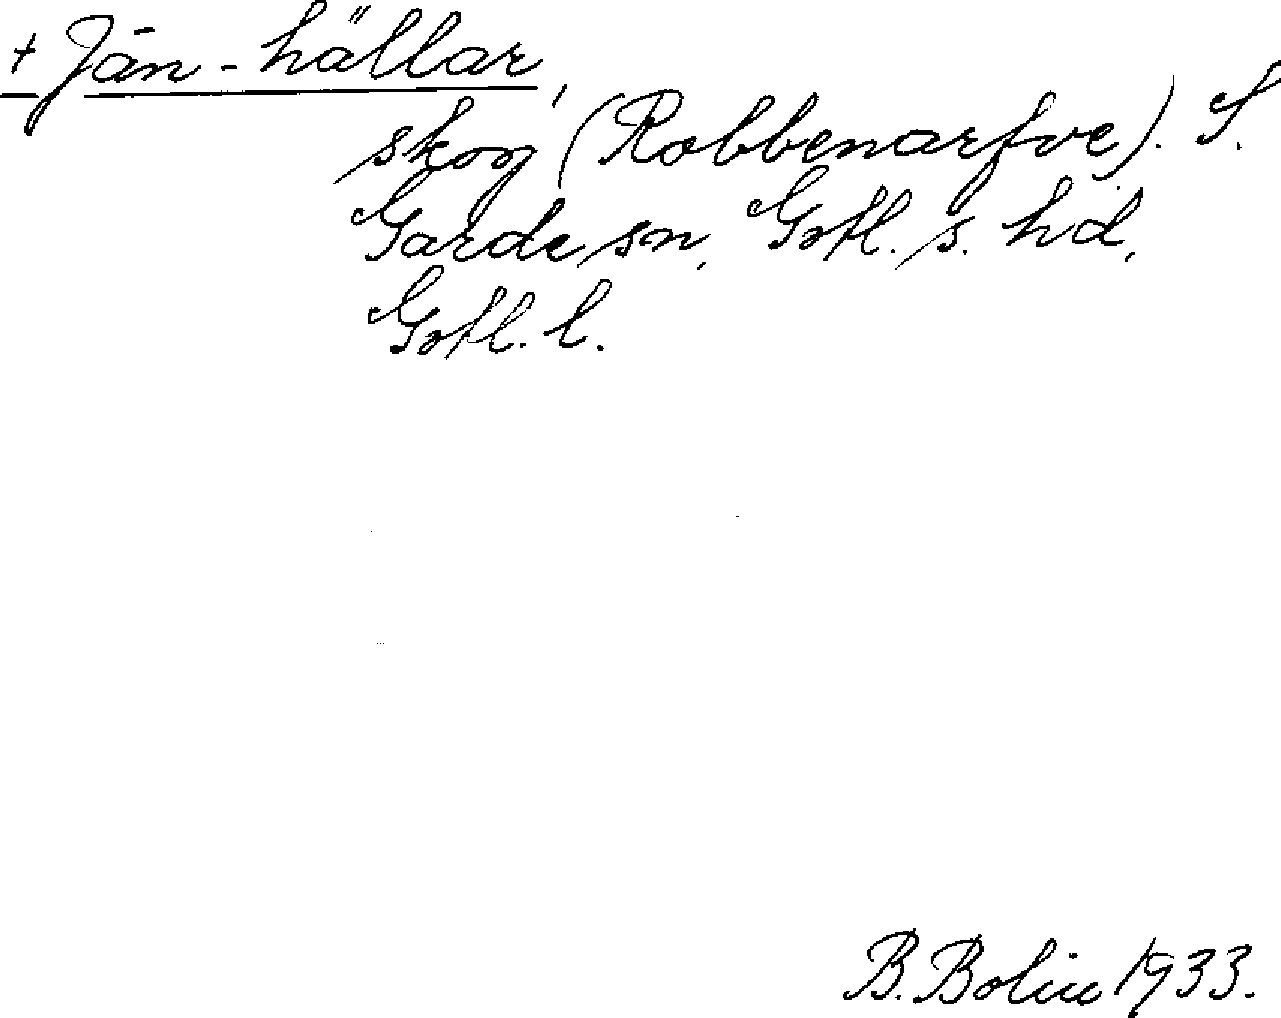 + Jān-hällar,
skog (Robbenarfve). S.
Garde sn, Gotl. s. hd,
Gotl. l.
B. Bolin 1933.